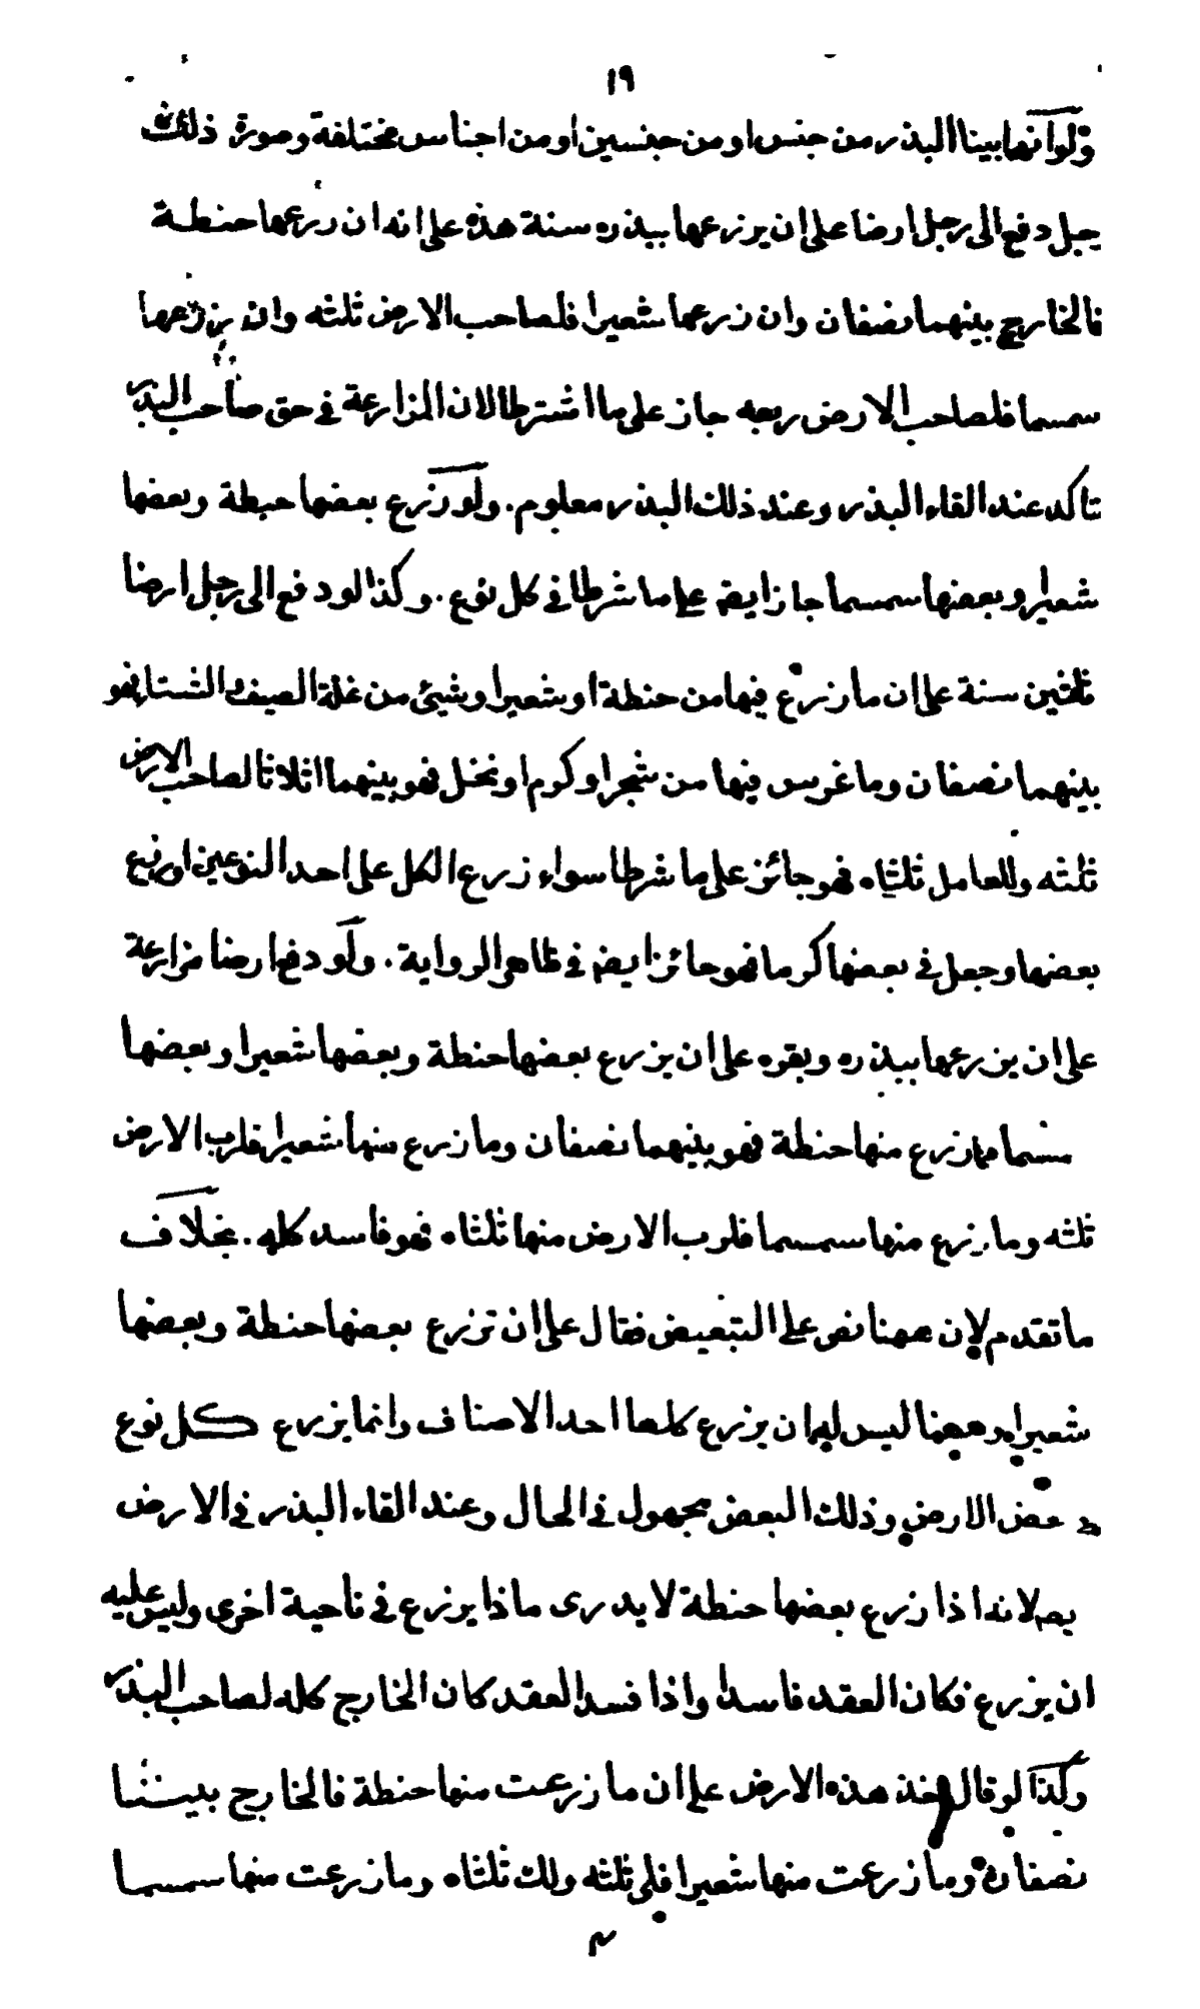 ١٩
ولو انهما بينا البذر من جنس او من جنسين او من اجناس مختلفة وصورة ذلك
رجل دفع الى رجل ارضا على ان يزرعها ببذره سنة هذه على انه ان زرعها حنطة
فالخارج بينهما نصفان وان زرعها شعيرا فلصاحب الارض ثلثه وان يزرعها
سمسما فلصاحب الارض ربعه جاز على ما اشترطا لان المزارعة في حق صاحب البذر
تتاكد عند القاء البذر وعند ذلك البذر معلوم. ولو زرع بعضها حبطة وبعضها
شعيرا وبعضها سمسما جاز ايضا على ما شرطا في كل نوع. وكذا لو دفع الى رجل ارضا
ثلثين سنة على ان ما زرع فيها من حنطة او شعير او شيئ من غلة الصيف والشتاء فهو
بينهما نصفان وما غرس فيها من شجر او كرم او نخل فهو بينهما اثلاثا لصاحب الارض
ثلثه وللعامل ثلثاه فهو جائز على ما شرطا سواء زرع الكل على احد النوعين او زرع
بعضها وجعل في بعضها كرما فهو جائز ايضا في ظاهر الرواية. ولو دفع ارضا مزارعة
على ان يزرعها ببذره وبقره على ان يزرع بعضها حنطة وبعضها شعيرا وبعضها
سمسما فما زرع منها حنطة فهو بينهما نصفان وما زرع منها شعيرا فلرب الارض
ثلثه وما زرع منها سمسما فلرب الارض منها ثلثاه فهو فاسد كله. بخلاف
ما تقدم لان ههنا نص على التبعيض فقال على ان تزرع بعضها حنطة وبعضها
شعيرا وههنا ليس له ان يزرع كلها احد الاصناف وانما يزرع كل نوع
بعض الارض وذلك البعض مجهول في الحال وعند القاء البذر في الارض
لانه اذا زرع بعضها حنطة لا يدرى ماذا يزرع في ناحية اخرى وليس عليه
ان يزرع فكان العقد فاسدا واذا فسد العقد كان الخارج كله لصاحب البذر
وكذا لو قال خذ هذه الارض على ان ما زرعت منها حنطة فالخارج بيننا
نصفان وما زرعت منها شعيرا فلي ثلثه ولك ثلثاه وما زرعت منها سمسما